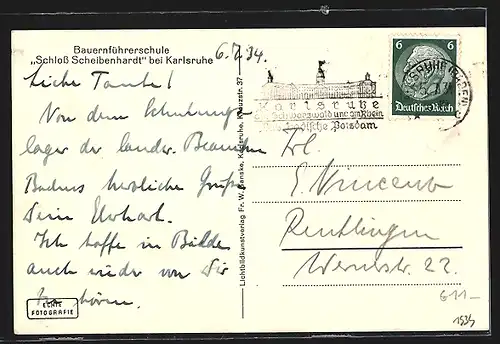 Bauernführerschule
„Schloß Scheibenhardt“ bei Karlsruhe
6.7.34.
Liebe Tante!
Von dem Schulungs
lager der landw. Beamten
Badens herzliche Grüße
Dein Ehrhart.
Ich hoffe in Bälde
auch wieder von Dir
zu hören.
ECHTE
FOTOGRAFIE
Lichtbildkunstverlag Fr. W. Banske, Karlsruhe, Kreuzstr. 37
Karlsruhe
Schwarzwald und am Rhein
Potsdam
6 6
Deutsches Reich
Frl.
E. Vincena
Reutlingen
Wernerstr. 22.
611-
1934